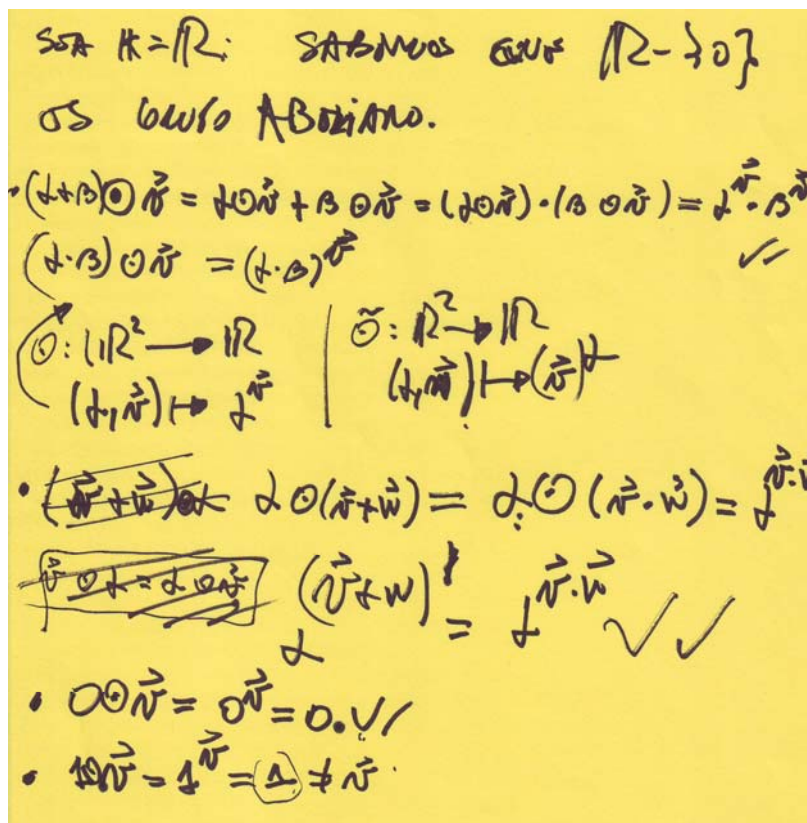 SEJA K = ℝ: SABEMOS QUE ℝ-{0}
OS GRUPO ABELIANO.
• (α+β)⊙v⃗ = α⊙v⃗ + β⊙v⃗ = (α⊙v⃗)·(β⊙v⃗) = α^v⃗·β^v⃗ ✓✓
(α·β)⊙v⃗ = (α·β)^v⃗
⊙: ℝ² → ℝ | ⊙̃: ℝ² → ℝ
(α, v⃗) ↦ α^v⃗ | (α, v⃗) ↦ (v⃗)^α
• α⊙(v⃗+w⃗) = α⊙(v⃗·w⃗) = α^v⃗·w⃗
v⃗⊙α = α⊙v⃗ α^(v⃗+w) = α^v⃗·w⃗ ✓✓
• 0⊙v⃗ = 0^v⃗ = 0. ✓✓
• 1⊙v⃗ = 1^v⃗ = 1 ≠ v⃗.